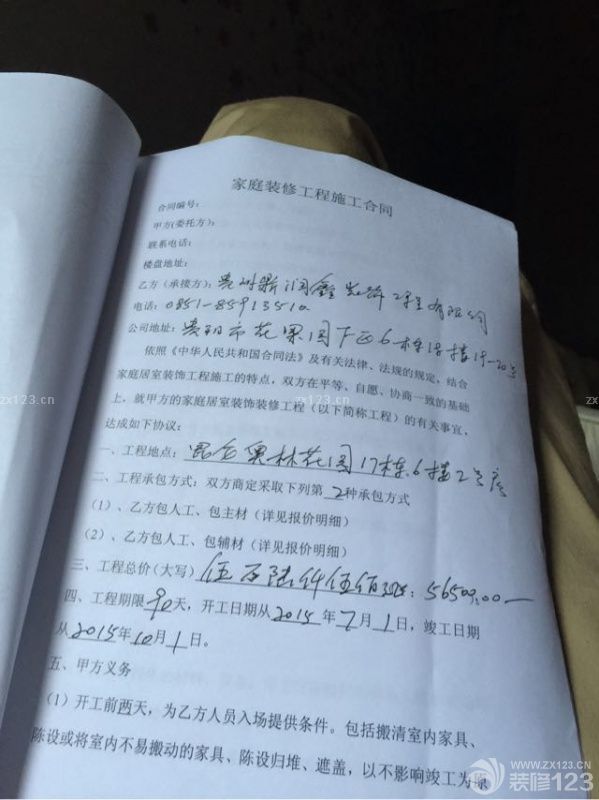 家庭装修工程施工合同
合同编号：
甲方(委托方)：
联系电话：
楼盘地址：
乙方（承接方）：贵州 润鑫装饰工程有限公司
电话：0851-85913510
公司地址：贵阳市花果园 区6栋 楼19-20号
依照《中华人民共和国合同法》及有关法律、法规的规定，结合
家庭居室装饰工程施工的特点，双方在平等、自愿、协商一致的基础
上，就甲方的家庭居室装饰装修工程（以下简称工程）的有关事宜，
达成如下协议：
一、工程地点： 奥林花园17栋6楼2号房
二、工程承包方式：双方商定采取下列第2种承包方式
（1）、乙方包人工、包主材（详见报价明细）
（2）、乙方包人工、包辅材（详见报价明细）
三、工程总价(大写) 伍万陆仟伍佰 ：56500.00
四、工程期限90天，开工日期从2015年7月1日，竣工日期
从2015年10月1日。
五、甲方义务
（1）开工前两天，为乙方人员入场提供条件。包括搬清室内家具、
陈设或将室内不易搬动的家具、陈设归堆、遮盖，以不影响竣工为原
zx123.cn
zx123.cn
WWW.ZX123.CN
装修123